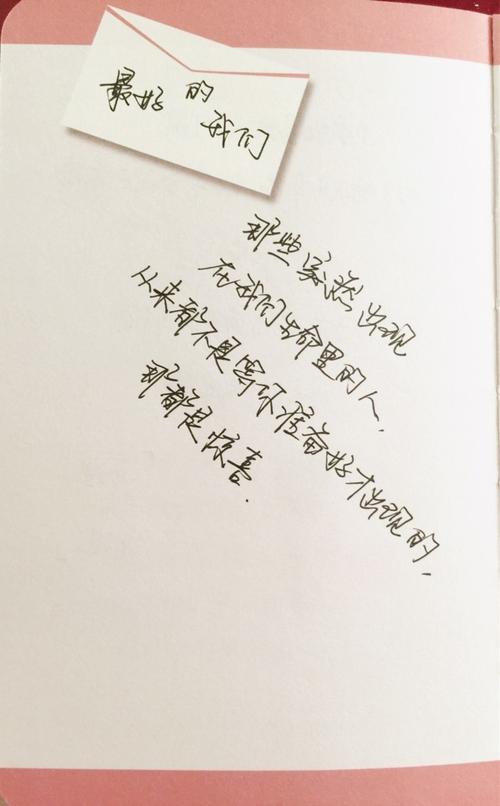 最好的
我们
那些突然出现
在我们生命里的人.
从来都不是等你准备好才出现的.
那都是惊喜.